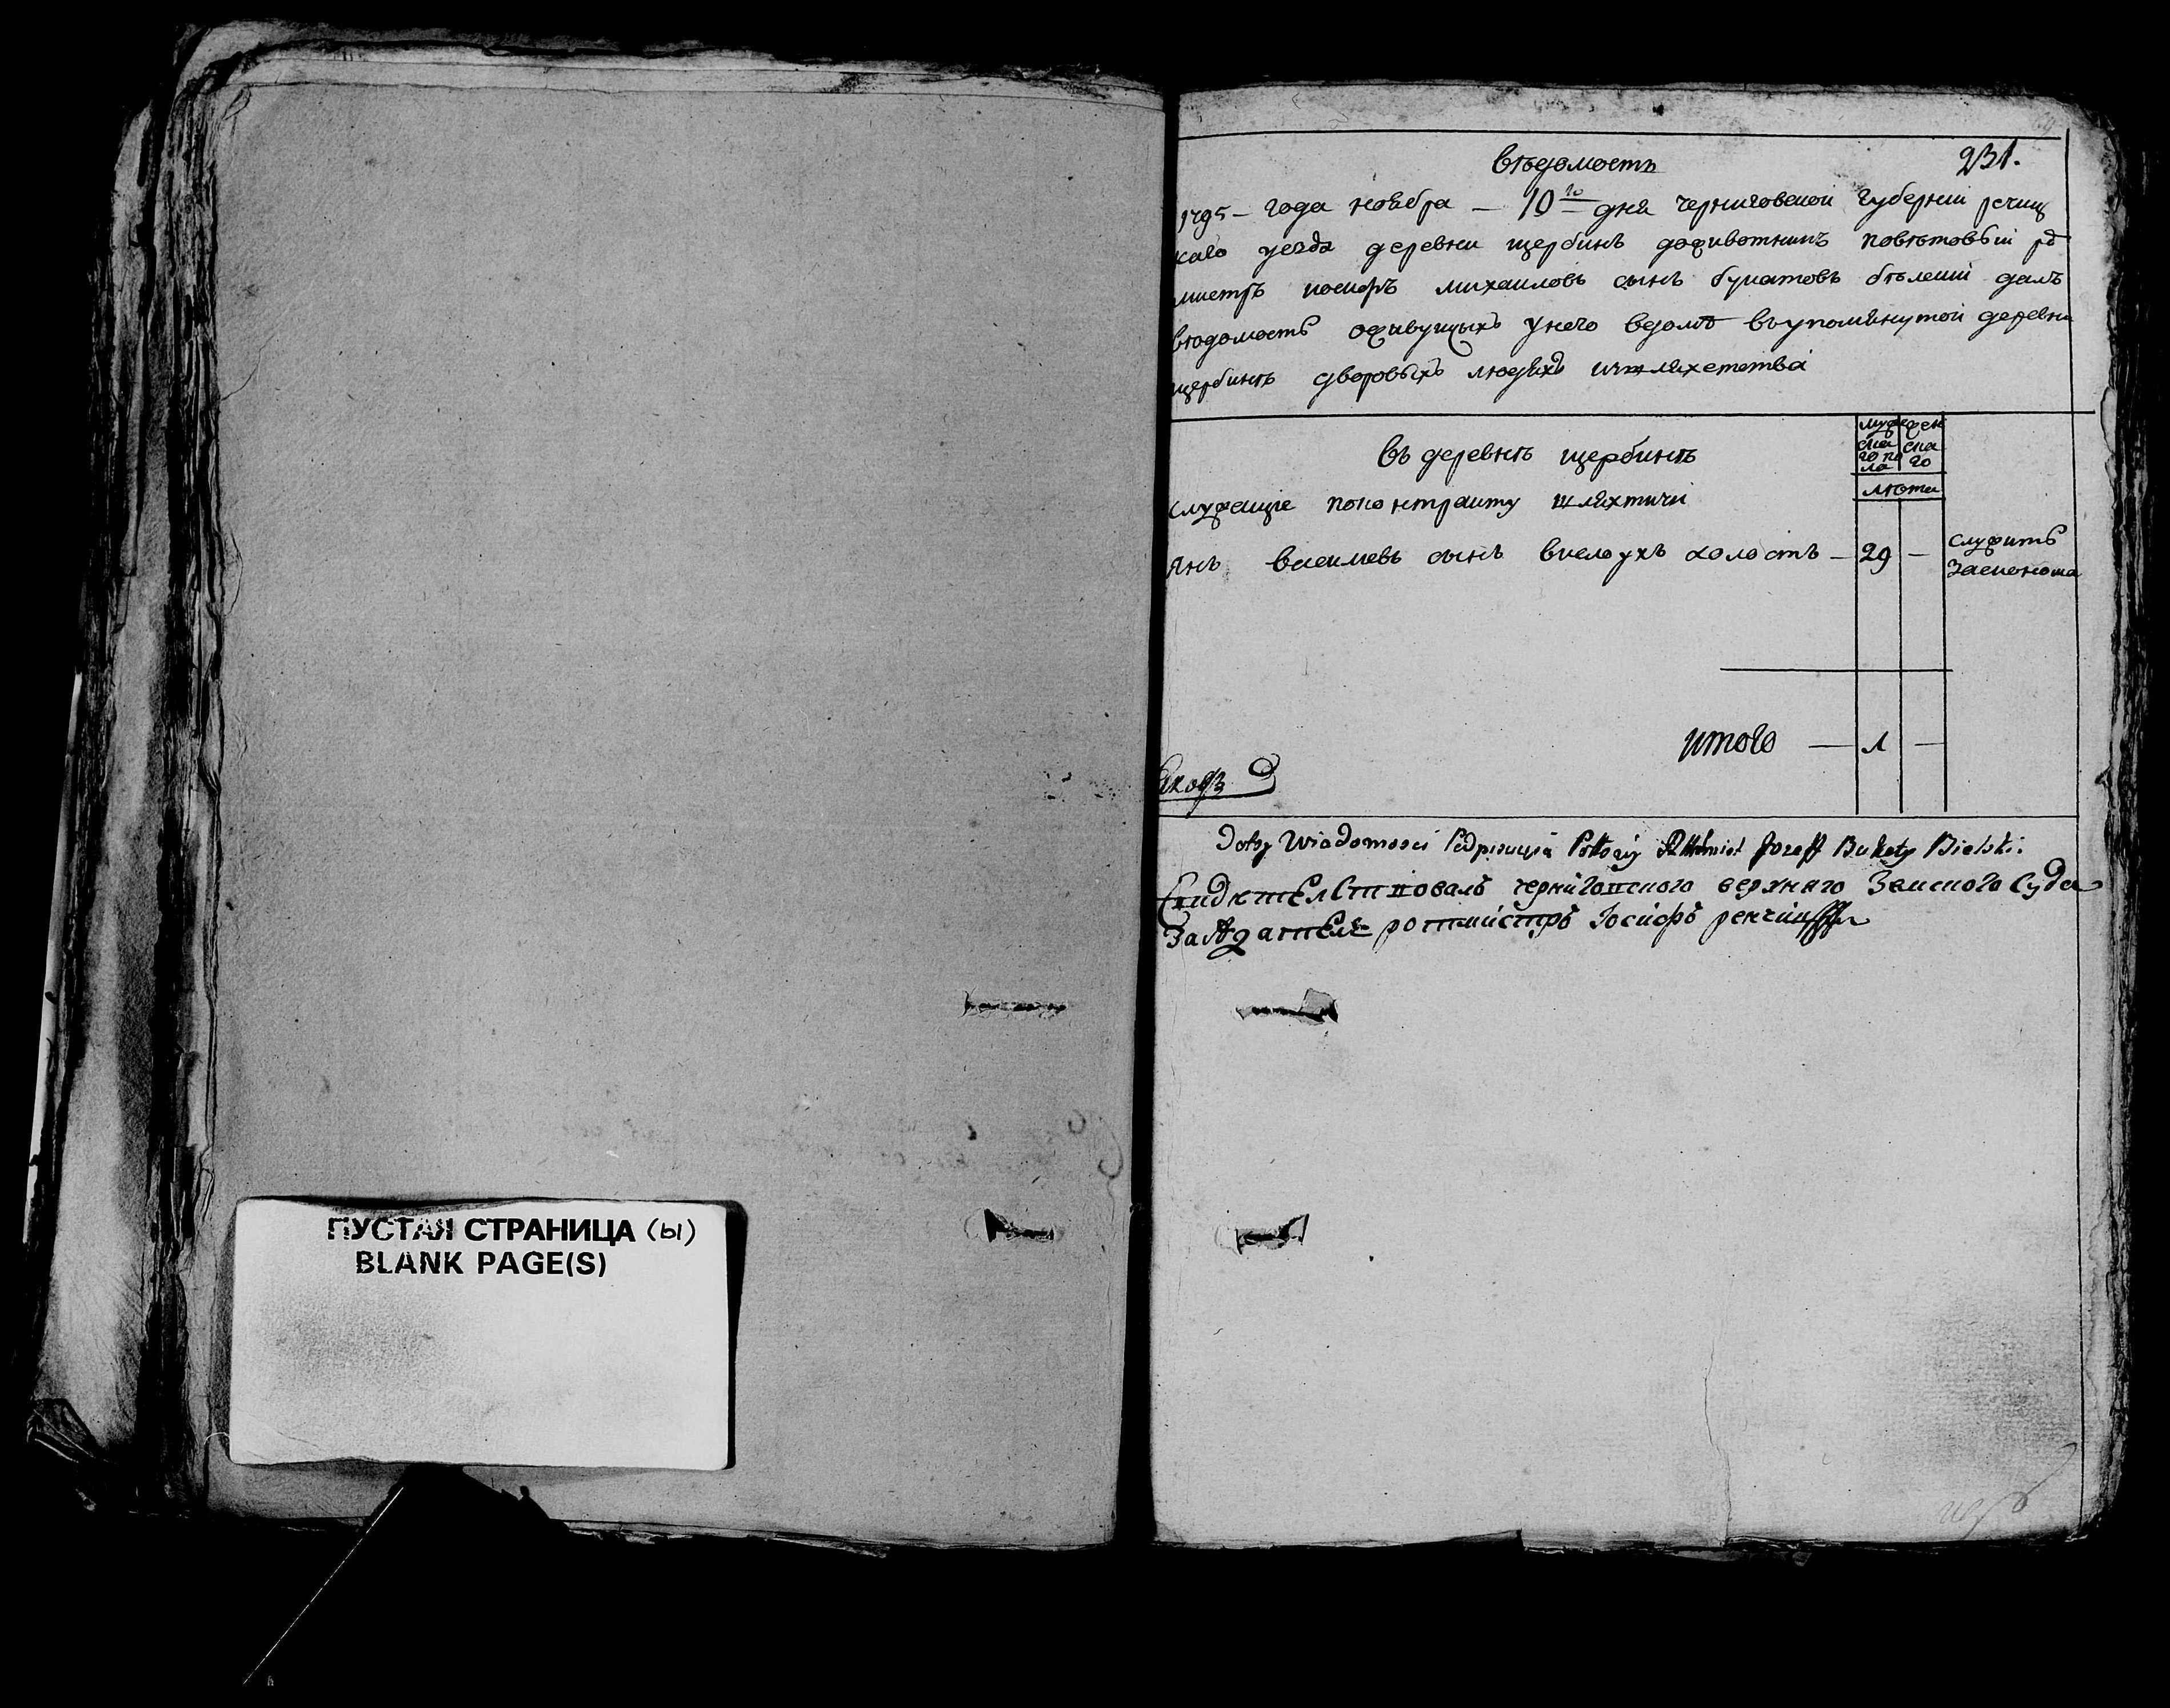 ПУСТАЯ СТРАНИЦА (ы)
BLANK PAGE(S)
231.
вѣдомость
1795 – года ноября – 10го дня черниговской губерніи речиц
каго уезда деревни щербинъ доживотникъ повѣтовый ро
мистръ иосифъ михаиловъ сынъ букатовъ бѣлски далъ
вѣдомость оживущихъ унего ведомѣ въупомянутой деревни
щербинѣ дворовыхъ людяхъ ишляхетства
въ деревнѣ щербинѣ
мужскаго пола
женскаго
лѣта
служащие поконтракту шляхтичи
Янъ василевъ сынъ вислоухъ холостъ – 29 –
служитъ заеконома
итого – 1 –
Doty Wiadomosci Podpisuię Rothmist Jozeff Bukaty Bielski
Свидѣтелствовалъ черниговского верхняго Земского суда
Заседатель ротмистръ Іосифъ